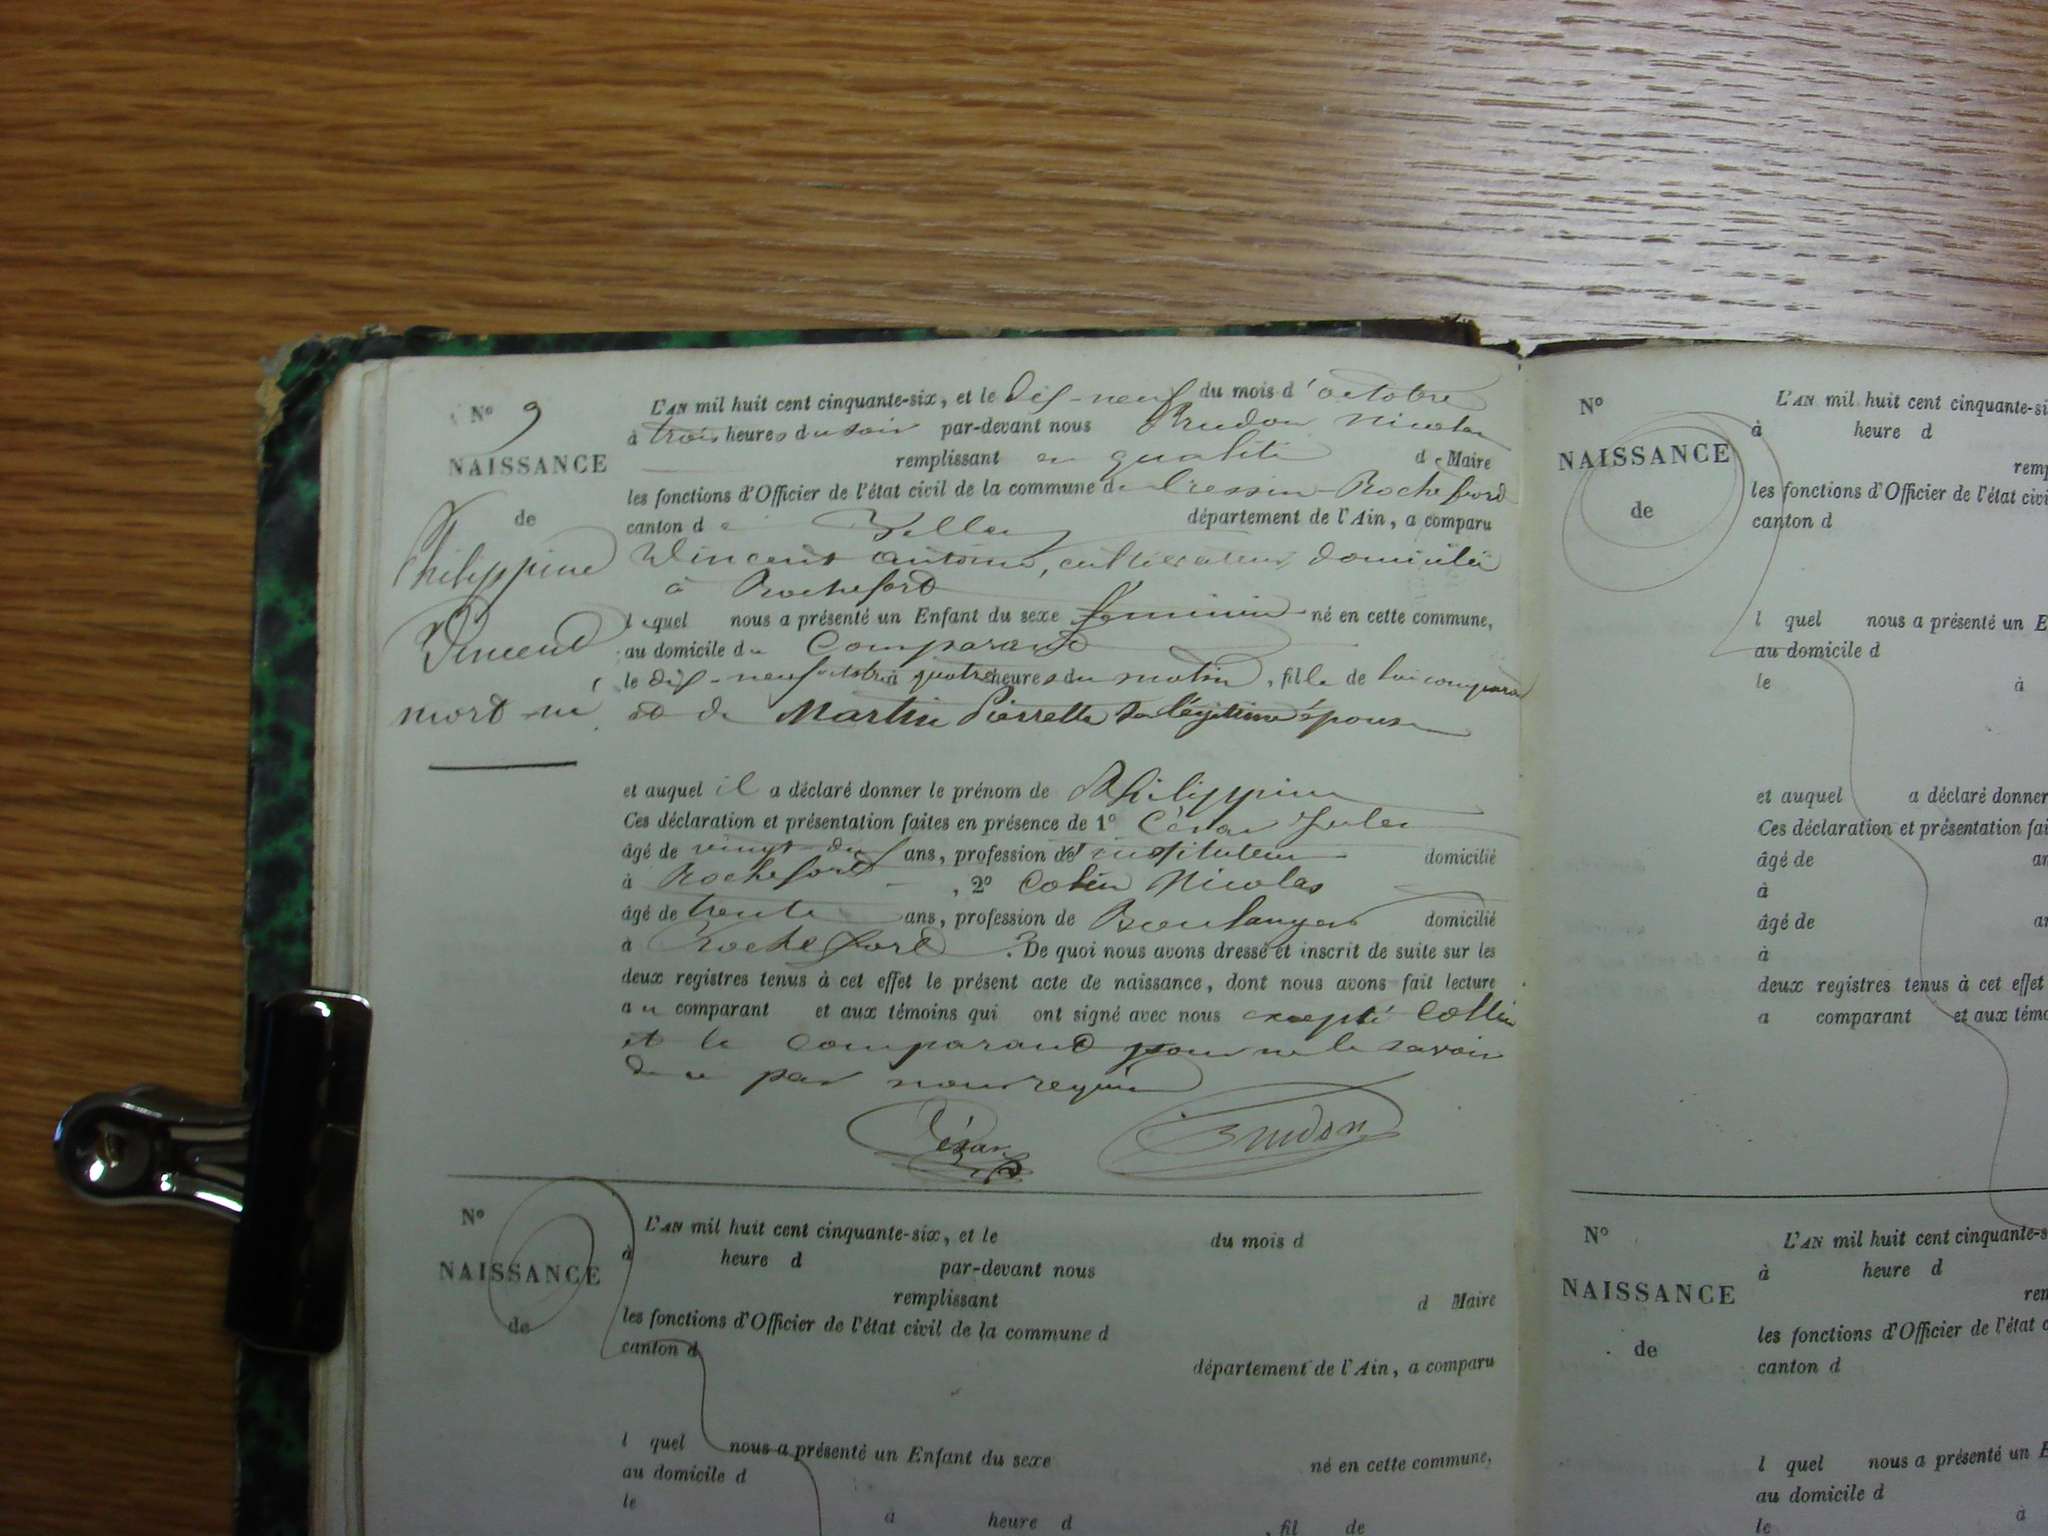 N° 9
NAISSANCE
de
Philippine
Vincent
mort né
L'AN mil huit cent cinquante-six, et le dix-neuf du mois d'octobre
à trois heures du soir par-devant nous Prudon Nicolas
remplissant en qualité de Maire
les fonctions d'Officier de l'état civil de la commune de Cressin-Rochefort
canton de Belley département de l'Ain, a comparu
Vincent antoine, cultivateur, domicilié
à Rochefort
lequel nous a présenté un Enfant du sexe féminin né en cette commune,
au domicile du Comparant
le dix-neuf octobre à quatre heures du matin, fille de lui comparant
et de Martin Pierrette sa légitime épouse
et auquel il a déclaré donner le prénom de Philippine
Ces déclaration et présentation faites en présence de 1° César Jules
âgé de vingt-dix ans, profession d'instituteur domicilié
à Rochefort, 2° Colin Nicolas
âgé de trente ans, profession de Boulanger domicilié
à Rochefort. De quoi nous avons dressé et inscrit de suite sur les
deux registres tenus à cet effet le présent acte de naissance, dont nous avons fait lecture
au comparant et aux témoins qui ont signé avec nous excepté Collin
et le comparant pour ne le savoir
de ce par nous requis
César Prudon
N°
NAISSANCE
de
L'AN mil huit cent cinquante-six, et le du mois d
à heure d par-devant nous
remplissant d Maire
les fonctions d'Officier de l'état civil de la commune d
canton d département de l'Ain, a comparu
l quel nous a présenté un Enfant du sexe né en cette commune,
au domicile d
le à heure d , fil de
N°
NAISSANCE
de
L'AN mil huit cent cinquante-si
à heure d
remp
les fonctions d'Officier de l'état civi
canton d
l quel nous a présenté un E
au domicile d
le à
et auquel a déclaré donner
Ces déclaration et présentation fai
âgé de an
à
âgé de an
à
deux registres tenus à cet effet
a comparant et aux témo
N°
NAISSANCE
de
L'AN mil huit cent cinquante-s
à heure d
rem
les fonctions d'Officier de l'état c
canton d
l quel nous a présenté un E
au domicile d
le à